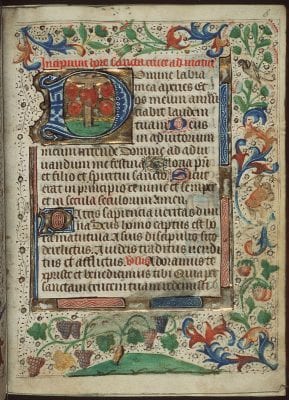 Incipiunt hore sancte crucis ad matut
Domine labia
mea aperies et
os meum annu
ciabit laudem
tuam Deus
in adiutorium
meum intende Domine ad adiu
uandum me festina Gloria pri
et filio et spiritui sancto Sicut
erat in principio et nunc et semper
et in secula seculorum amen
Patris sapiencia ueritas diui
na Deus homo captus est ho
ra matutina A suis discipulis cito
derelictus A iudeis traditus uendi
tus et afflictus Adoramus te
xpriste et benedicimus tibi Quia per
sanctam crucem tuam redemisti